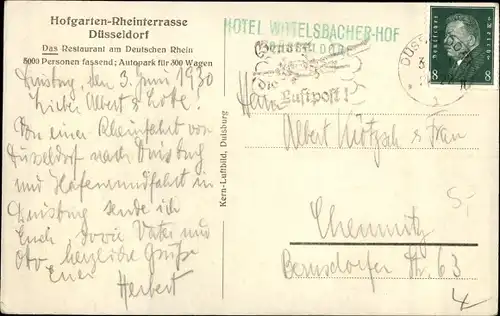 Hofgarten-Rheinterrasse
Düsseldorf
Das Restaurant am Deutschen Rhein
5000 Personen fassend; Autopark für 800 Wagen
Duisburg, den 3. Juni 1930
Lieber Albert & Lotte!
Von einer Rheinfahrt von
Düsseldorf nach Duisburg
und Hafenrundfahrt in
Duisburg sende ich
Euch sowie Vater und
Otto herzliche Grüße
Euer
Herbert
Kern-Luftbild, Duisburg
HOTEL WITTELSBACHER-HOF
DÜSSELDORF
die
Luftpost!
DÜSSELDORF
8 8
Herrn
Albert Nötzsch & Frau
Chemnitz
Bernsdorfer Str. 63
5,-
4